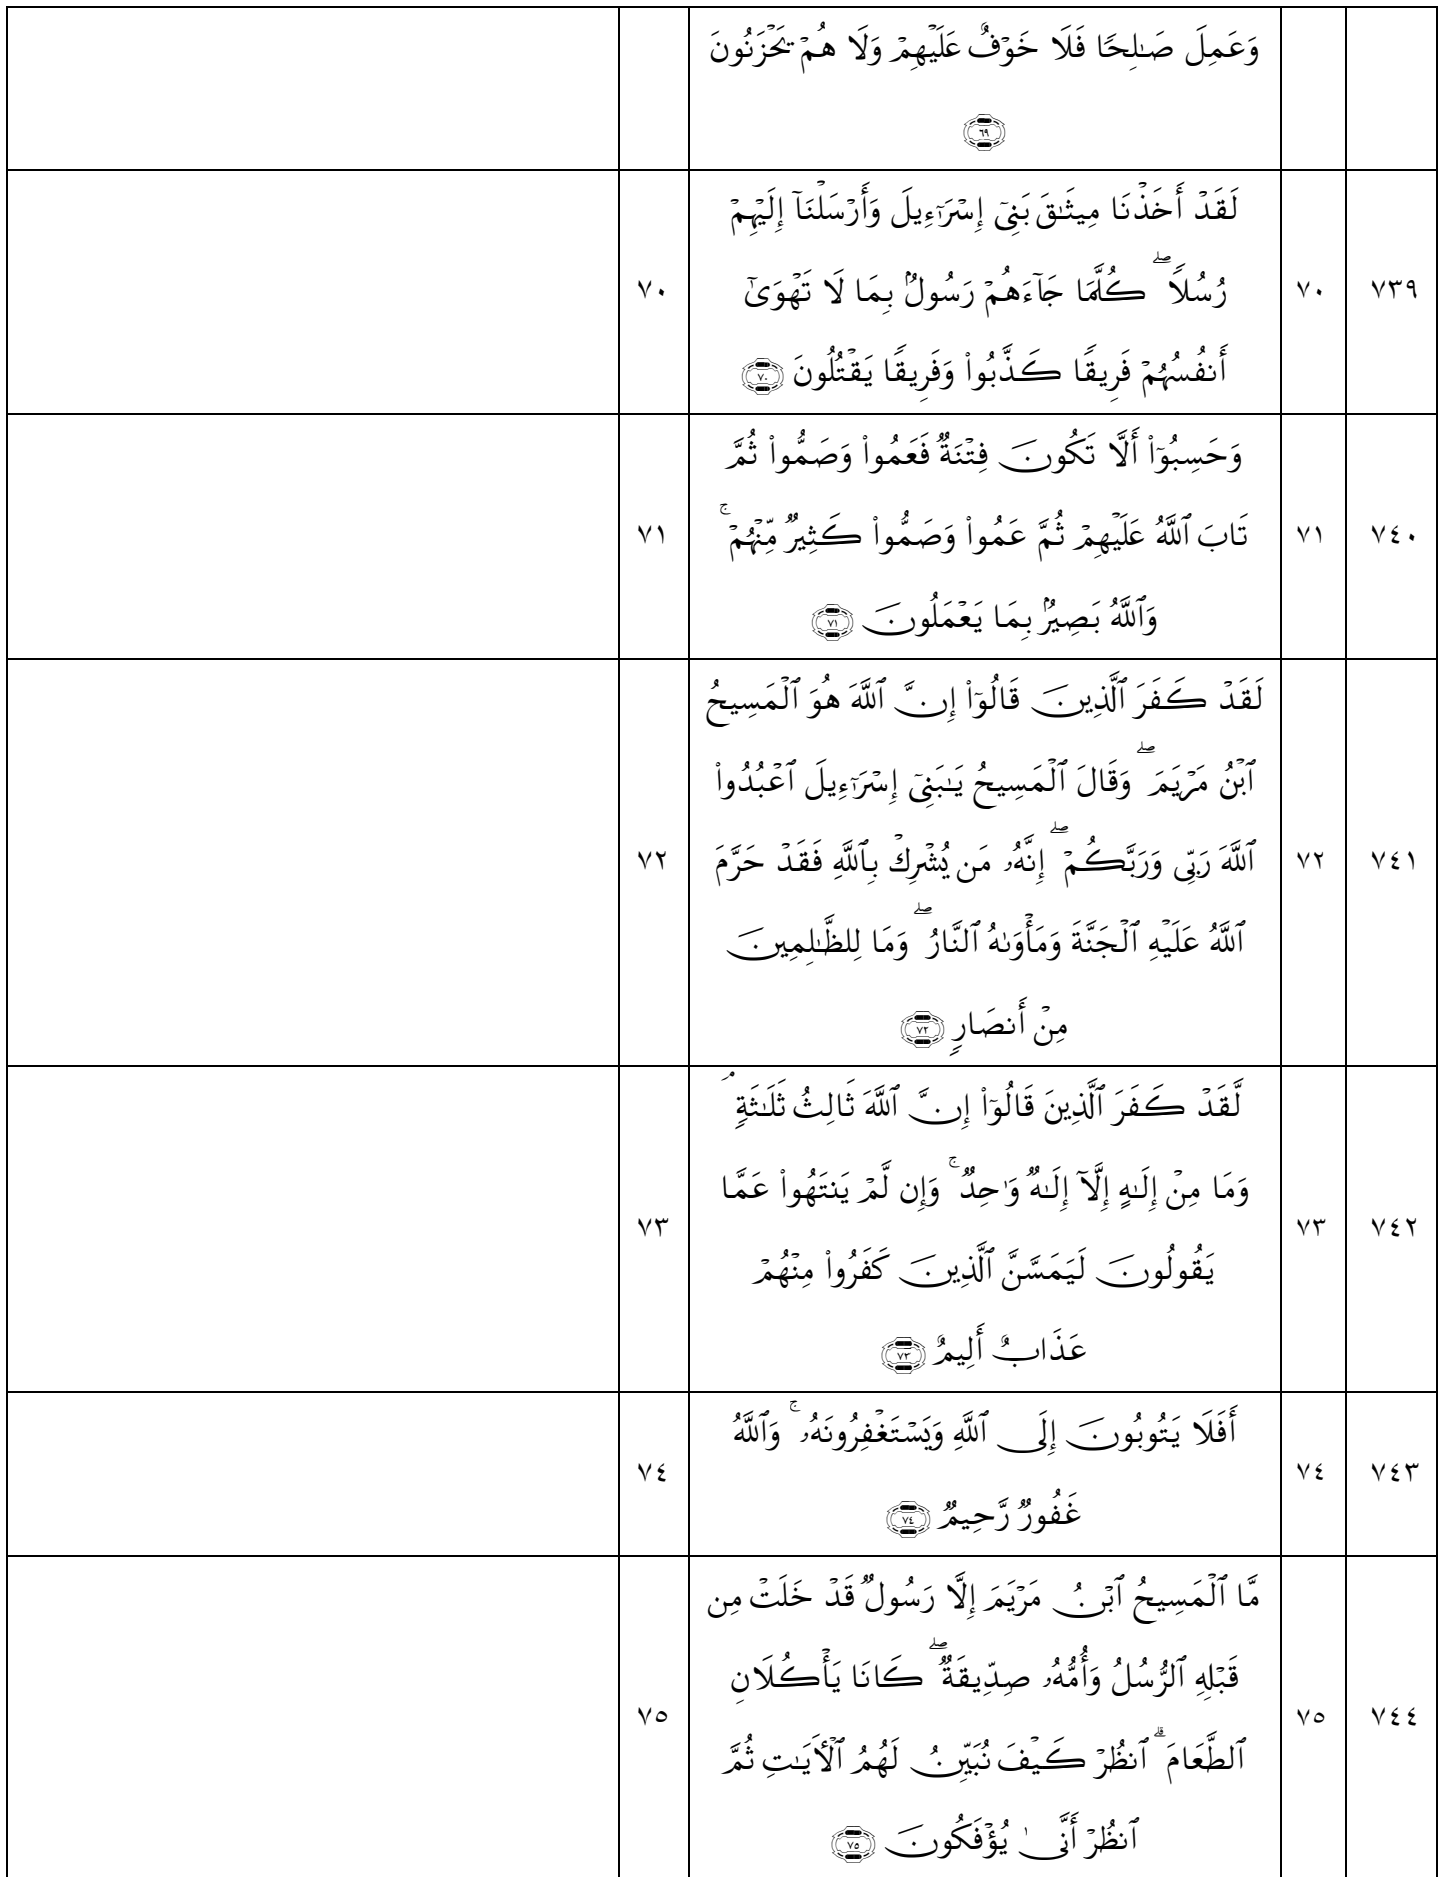 وَعَمِلَ صَـٰلِحًا فَلَا خَوْفٌ عَلَيْهِمْ وَلَا هُمْ يَحْزَنُونَ
٦٩
٧٣٩ ٧٠ لَقَدْ أَخَذْنَا مِيثَـٰقَ بَنِىٓ إِسْرَٰٓءِيلَ وَأَرْسَلْنَآ إِلَيْهِمْ ٧٠
رُسُلًا ۖ كُلَّمَا جَآءَهُمْ رَسُولٌۢ بِمَا لَا تَهْوَىٰٓ
أَنفُسُهُمْ فَرِيقًا كَذَّبُوا۟ وَفَرِيقًا يَقْتُلُونَ ٧٠
٧٤٠ ٧١ وَحَسِبُوٓا۟ أَلَّا تَكُونَ فِتْنَةٌ فَعَمُوا۟ وَصَمُّوا۟ ثُمَّ ٧١
تَابَ ٱللَّهُ عَلَيْهِمْ ثُمَّ عَمُوا۟ وَصَمُّوا۟ كَثِيرٌ مِّنْهُمْ ۚ
وَٱللَّهُ بَصِيرٌۢ بِمَا يَعْمَلُونَ ٧١
٧٤١ ٧٢ لَقَدْ كَفَرَ ٱلَّذِينَ قَالُوٓا۟ إِنَّ ٱللَّهَ هُوَ ٱلْمَسِيحُ ٧٢
ٱبْنُ مَرْيَمَ ۖ وَقَالَ ٱلْمَسِيحُ يَـٰبَنِىٓ إِسْرَٰٓءِيلَ ٱعْبُدُوا۟
ٱللَّهَ رَبِّى وَرَبَّكُمْ ۖ إِنَّهُۥ مَن يُشْرِكْ بِٱللَّهِ فَقَدْ حَرَّمَ
ٱللَّهُ عَلَيْهِ ٱلْجَنَّةَ وَمَأْوَىٰهُ ٱلنَّارُ ۖ وَمَا لِلظَّـٰلِمِينَ
مِنْ أَنصَارٍ ٧٢
٧٤٢ ٧٣ لَّقَدْ كَفَرَ ٱلَّذِينَ قَالُوٓا۟ إِنَّ ٱللَّهَ ثَالِثُ ثَلَـٰثَةٍ ۘ ٧٣
وَمَا مِنْ إِلَـٰهٍ إِلَّآ إِلَـٰهٌ وَٰحِدٌ ۚ وَإِن لَّمْ يَنتَهُوا۟ عَمَّا
يَقُولُونَ لَيَمَسَّنَّ ٱلَّذِينَ كَفَرُوا۟ مِنْهُمْ
عَذَابٌ أَلِيمٌ ٧٣
٧٤٣ ٧٤ أَفَلَا يَتُوبُونَ إِلَى ٱللَّهِ وَيَسْتَغْفِرُونَهُۥ ۚ وَٱللَّهُ ٧٤
غَفُورٌ رَّحِيمٌ ٧٤
٧٤٤ ٧٥ مَّا ٱلْمَسِيحُ ٱبْنُ مَرْيَمَ إِلَّا رَسُولٌ قَدْ خَلَتْ مِن ٧٥
قَبْلِهِ ٱلرُّسُلُ وَأُمُّهُۥ صِدِّيقَةٌ ۖ كَانَا يَأْكُلَانِ
ٱلطَّعَامَ ۗ ٱنظُرْ كَيْفَ نُبَيِّنُ لَهُمُ ٱلْـَٔايَـٰتِ ثُمَّ
ٱنظُرْ أَنَّىٰ يُؤْفَكُونَ ٧٥